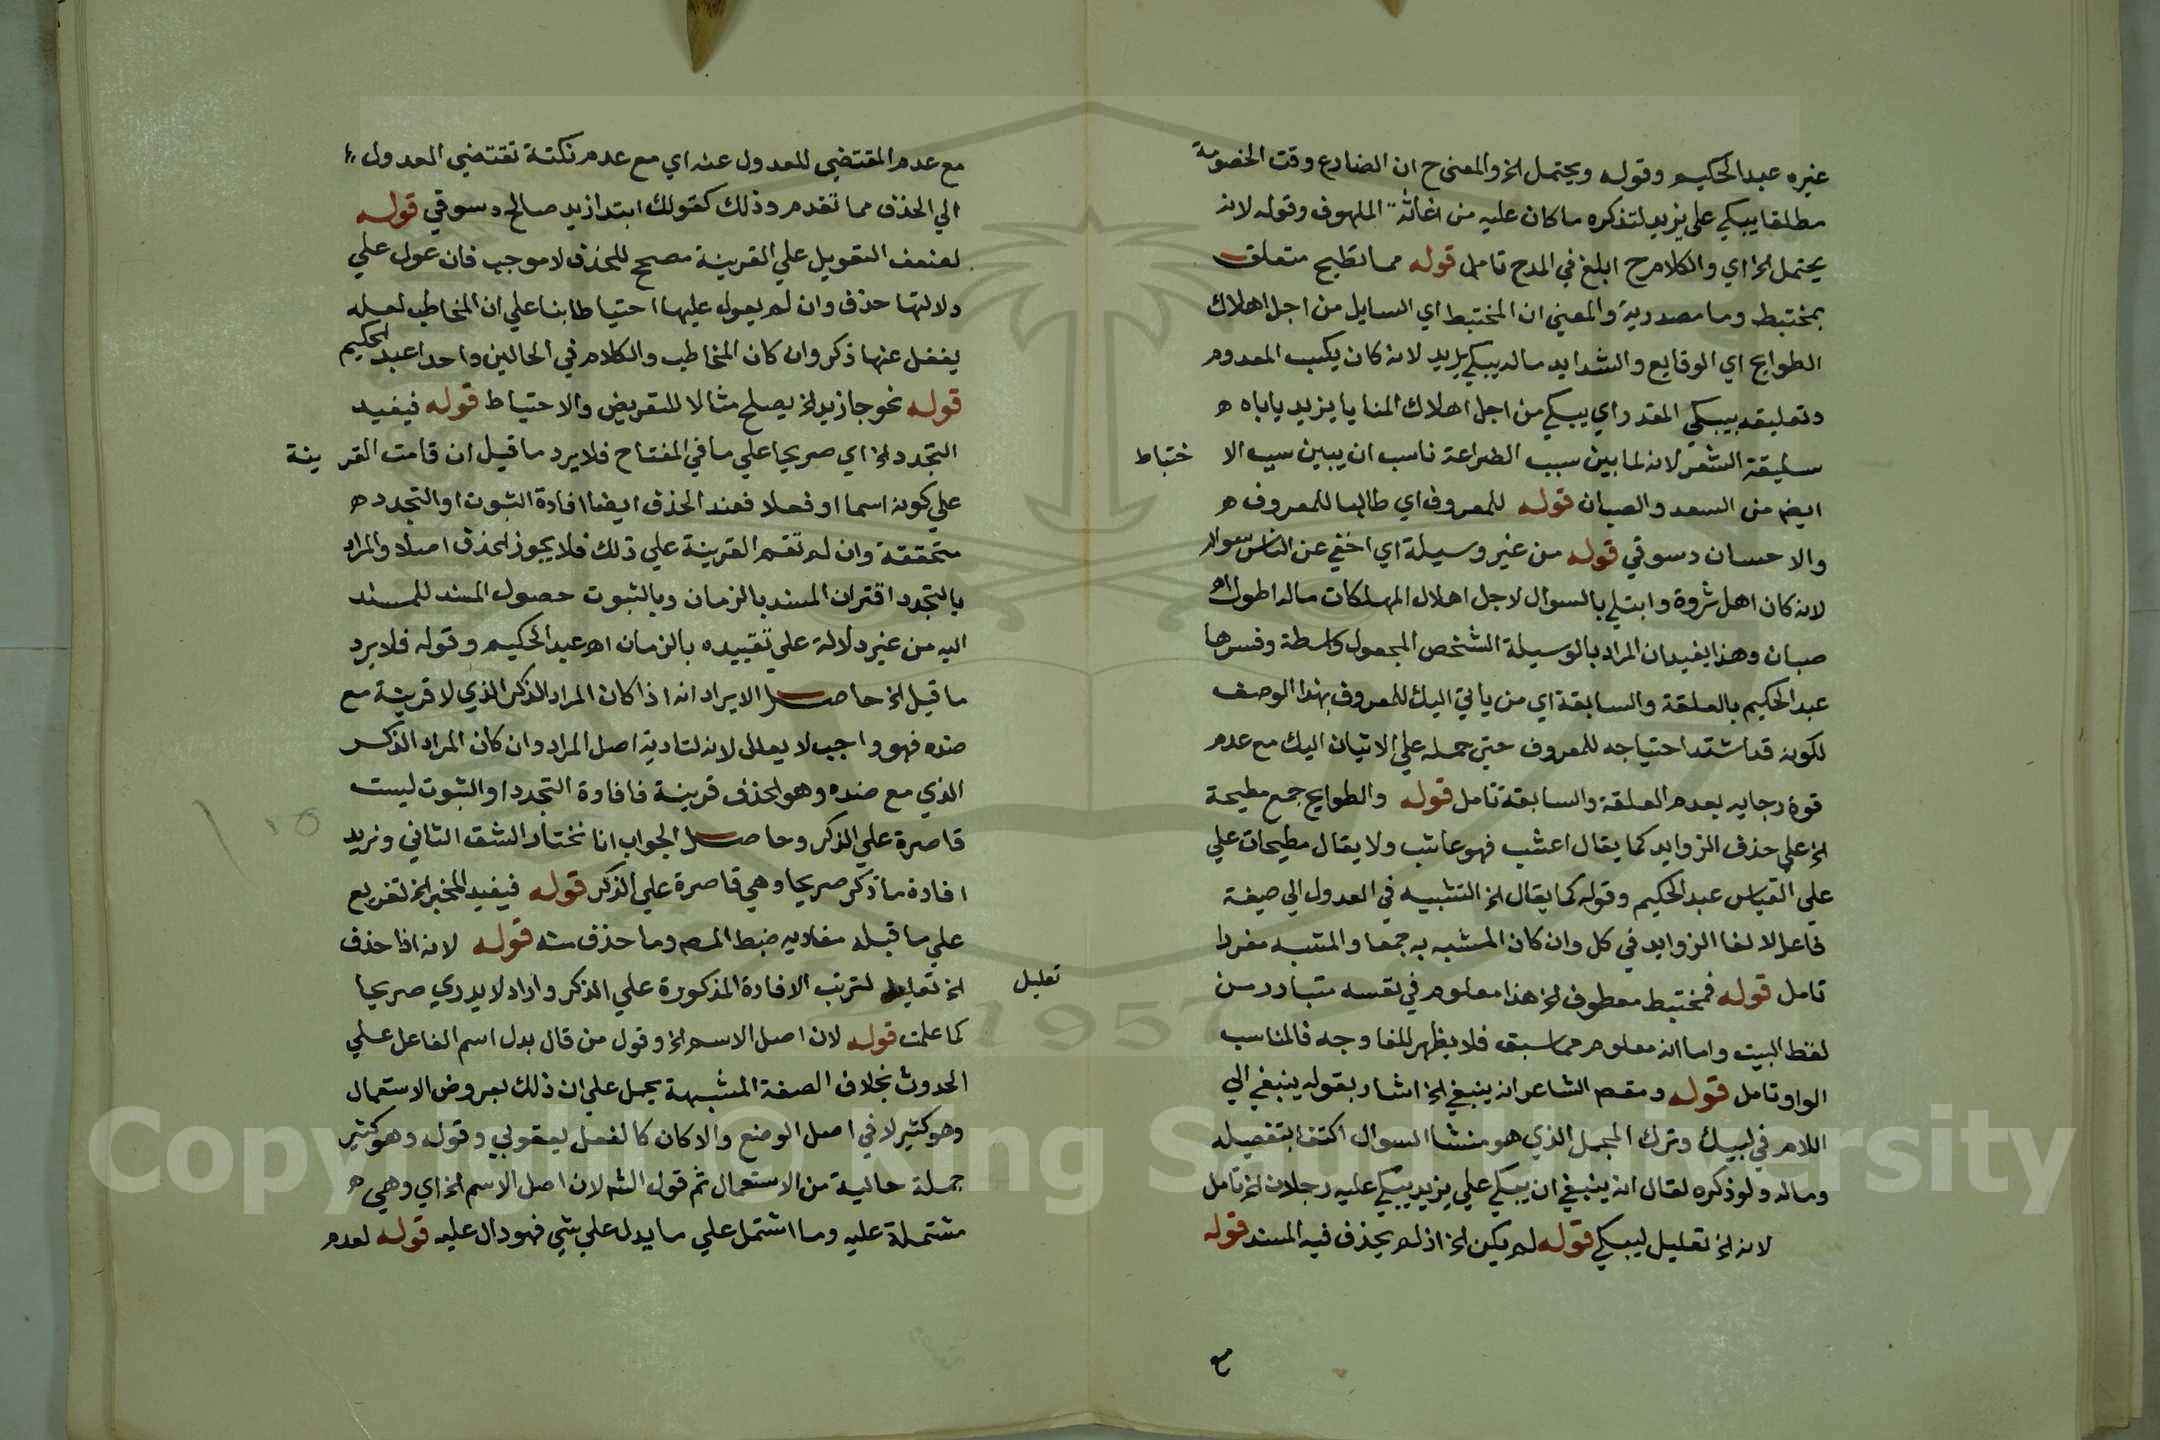 غيره عبد الحكيم وقوله ويحتمل الخ والمعنى ح ان الضارع وقت الخصومة
مطلقا يبكي على يزيد لتذكره ما كان عليه من اغاثة الملهوف وقوله لانه
يحتمل الخ اي والكلام ح ابلغ في المدح تامل قوله مما تطيح متعلق
بمختبط وما مصدرية والمعني ان المختبط اي السايل من اجل اهلاك
الطوايح اي الوقايع والشدايد ماله يبكي يزيد لانه كان يكسب المعدوم
وتعليقه بيبكي المقدر اي يبكي من اجل اهلاك المنايا يزيد ياباه ه
سليقة الشعر لانه لما بين سبب الضراعة ناسب ان يبين سبب الا ختباط
ايضه من السعد والصبان قوله للمعروف اي طالبا للمعروف ه
والاحسان دسوقي قوله من غير وسيلة اي اخفي عن الناس سواله
لانه كان اهل ثروة وابتلي بالسوال لاجل اهلاك المهلكات ماله اطول اه
صبان وهذا يفيد ان المراد بالوسيلة الشخص المجعول واسطة وفسرها
عبد الحكيم بالعلقة والسابقة اي من ياتي اليك للمعروف بهذا الوصف
لكونه قد اشتد احتياجه للمعروف حتي حمله علي الاتيان اليك مع عدم
قوة رجايه بعدم العلقة والسابقة تامل قوله والطوايح جمع مطيحة
الخ علي حذف الزوايد كما يقال اعشب فهو عاشب ولا يقال مطيحات علي
علي القياس عبد الحكيم وقوله كما يقال الخ التشبيه في العدول الي صيغة
فاعل لالغا الزوايد في كل وان كان المشبه به جمعا والمشبه مفردا
تامل قوله فمختبط معطوف الخ هذا معلوم في نفسه متبادر من
لفظ البيت واما انه معلوم مما سبق فلا يظهر للفا وجه فالمناسب
الواو تامل قوله ومقصم الشاعر انه ينبغي الخ اشار بقوله ينبغي الي
اللام في لبيك وترك المجمل الذي هو منشا السوال اكتفا بتفصيله
وماله ولو ذكره لقال انه ينبغي ان يبكي علي يزيد يبكي عليه رجلان الخ تامل
لانه الخ تعليل ليبكي قوله لم يكن الخ اذ لم يحذف فيه المسند قوله
مع
مع عدم المقتضي للعدول عنه اي مع عدم نكتة تقتضي العدول
الي الحذف مما تقدم وذلك كقولك ابتدا زيد صالح دسوقي قوله
لضعف التعويل علي القرينة مصحح للحذف لا موجب فان عول علي
دلالتها حذف وان لم يعول عليها احتياطا بنا علي ان المخاطب لعله
يغفل عنها ذكر وان كان المخاطب والكلام في الحالين واحدا عبد الحكيم
قوله نحو جا زيد الخ يصلح مثالا للتعريض والاحتياط قوله فيفيد
التجدد الخ اي صريحا علي ما في المفتاح فلا يرد ما قيل ان قامت القر ينة
علي كونه اسما او فعلا فعند الحذف ايضا افادة الثبوت او التجدد ه
متحققة وان لم تقم القرينة علي ذلك فلا يجوز الحذف اصلا والمراد
بالتجدد اقتران المسند بالزمان وبالثبوت حصول المسند للمسند
اليه من غير دلالة علي تقييده بالزمان اه عبد الحكيم وقوله فلا يرد
ما قيل الخ حاصل الايراد انه اذا كان المراد الذكر الذي لا قرينة مع
ضده فهو واجب لا يعلل لانه لتادية اصل المراد وان كان المراد الذكر
الذي مع ضده وهو الحذف قرينة فافادة التجدد او الثبوت ليست
قاصرة علي الذكر وحاصل الجواب انا نختار الشق الثاني ونريد
افادة ما ذكر صريحا وهي قاصرة علي الذكر قوله فيفيد المخبر الخ تفريع
علي ما قبله مفاديه ضبط المصم وما حذف منه قوله لانه اذا حذف
الخ تعليل لترتب الافادة المذكورة علي الذكر واراد لا يدري صريحا
تعليل
كما علمت قوله لان اصل الاسم الخ وقول من قال بدل اسم الفاعل علي
الحدوث بخلاف الصفة المشبهة يحمل علي ان ذلك بعروض الاستعمال
وهو كثير لا في اصل الوضع والا كان كالفعل يعقوبي وقوله وهو كثير
جملة حالية من الاستعمال ثم قول الشه لان اصل الاسم الخ اي وهي ه
مشتملة عليه وما اشتمل علي ما يدل علي شي فهو دال عليه قوله لعدم
1957
Copyright © King Saud University